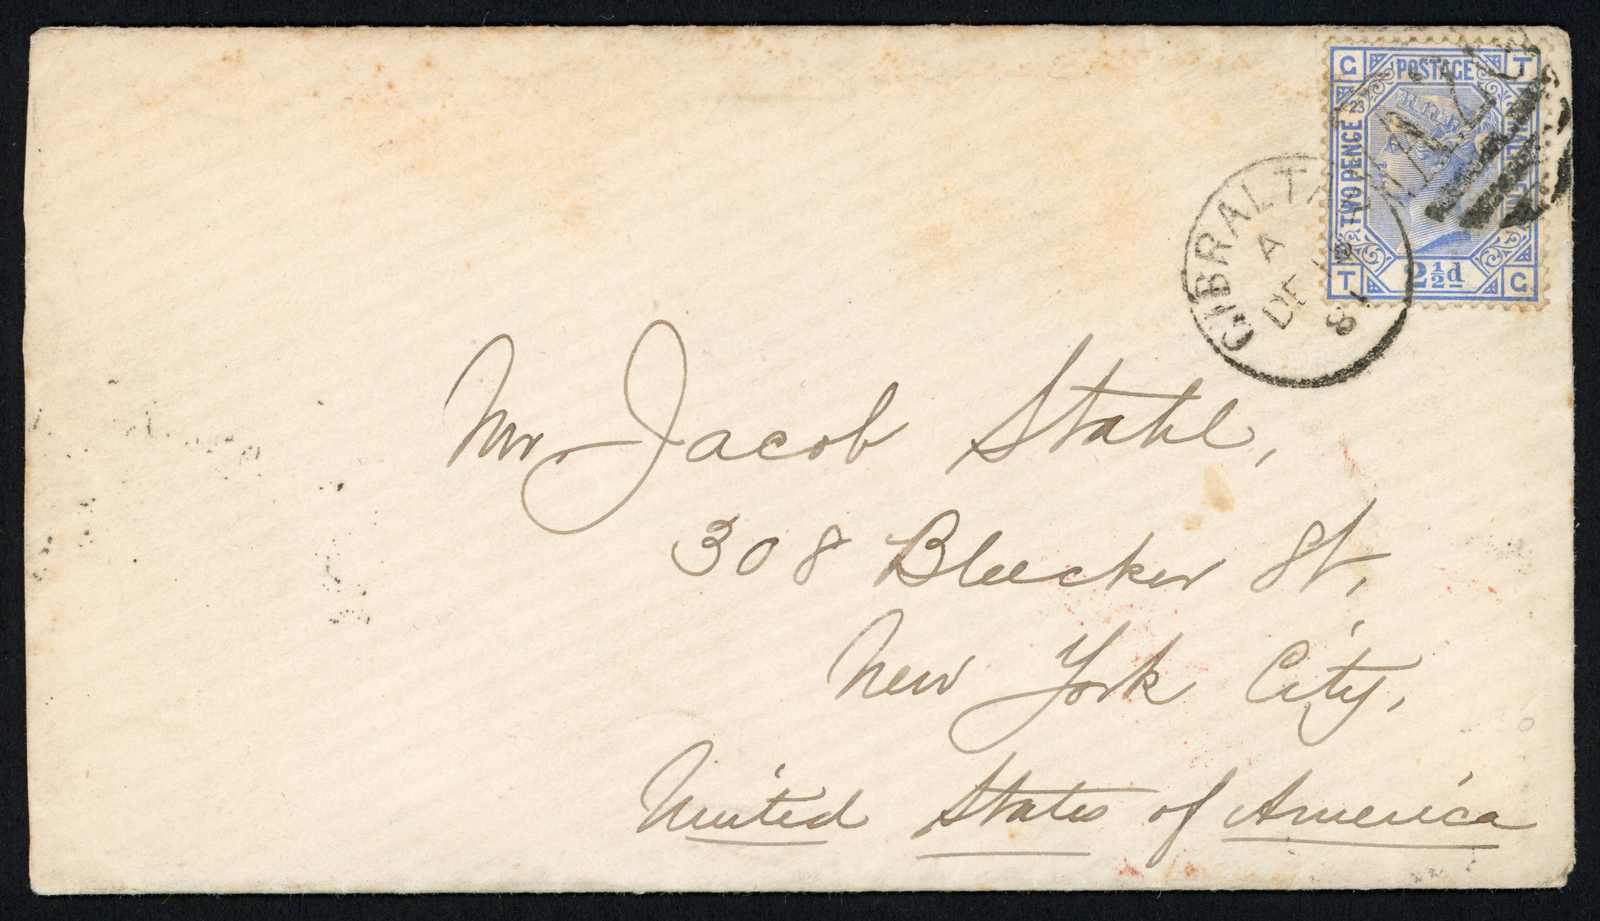 G POSTAGE T
23
TWO PENCE
T 2½d G
GIBRALTAR
A
DE
81
Mr. Jacob Stahl,
308 Bleecker St,
New York City,
United States of America